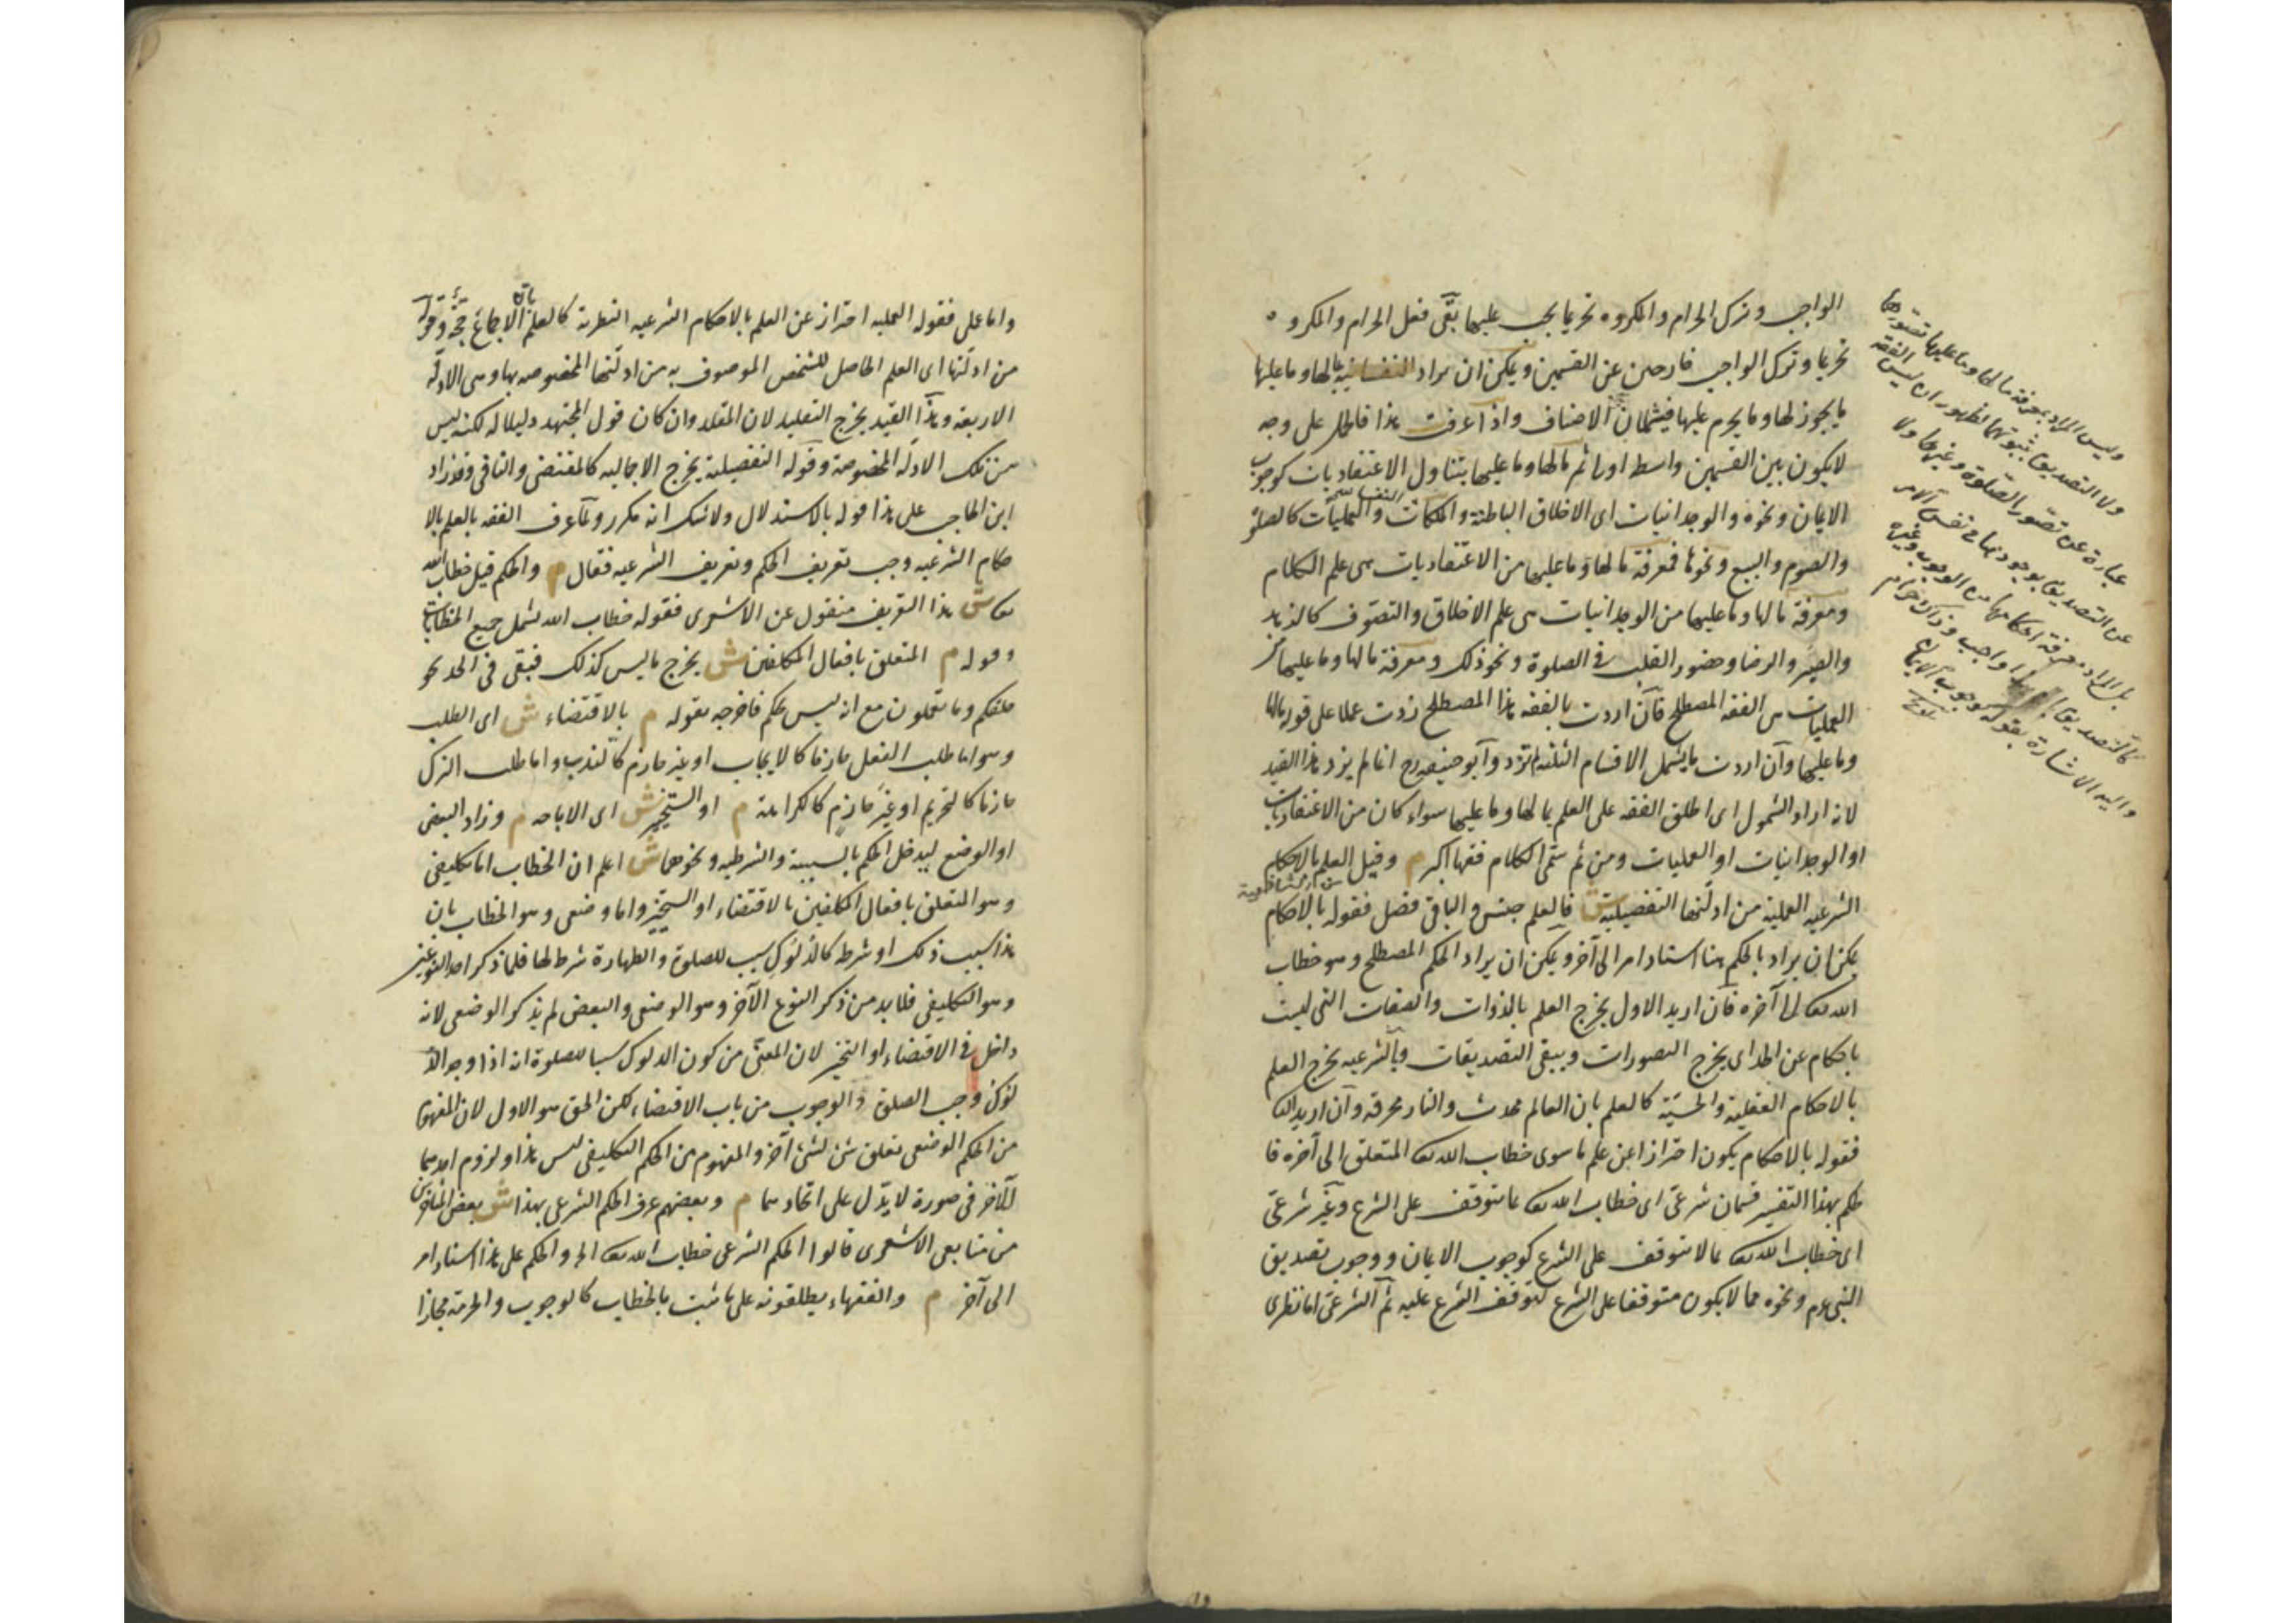 الواجب وترك الحرام والمكروه تحريما يجب عليها بقى فعل الحرام والمكروه
تحريما وترك الواجب خارجين عن القسمين ويمكن ان يراد النفسانية بما لها وما عليها
ما يجوز لها وما يحرم عليها فيشملان الاصناف واذا عرفت هذا فالحمل على وجه
لا يكون بين القسمين واسطة اولى ثم مالها وما عليها يتناول الاعتقاديات كوجوب
الايمان ونحوه والوجدانيات اى الاخلاق الباطنة والملكات النفسانية والعمليات كالصلوة
والصوم والبيع ونحوها فمعرفة مالها وما عليها من الاعتقاديات هى علم الكلام
ومعرفة مالها وما عليها من الوجدانيات هى علم الاخلاق والتصوف كالزهد
والصبر والرضا وحضور القلب فى الصلوة ونحو ذلك ومعرفة مالها وما عليها من
العمليات هى الفقه المصطلح فان اردت بالفقه هذا المصطلح زدت عملا على قوله مالها
وما عليها وان اردت ما يشمل الاقسام الثلثة لم تزد وابو حنيفه رح انما لم يزد هذا القيد
لانه اراد الشمول اى اطلق الفقه على العلم بما لها وما عليها سواء كان من الاعتقاديات
او الوجدانيات او العمليات ومن ثم سمى الكلام فقها اكبر م وقيل العلم بالاحكام
الشرعيه العملية من ادلتها التفصيلية ش فالعلم جنس والباقى فصل فقوله بالاحكام
يمكن ان يراد بالحكم هنا اسناد امر الى آخر ويمكن ان يراد الحكم المصطلح وهو خطاب
الله تعا الى آخره فان اريد الاول يخرج العلم بالذوات والصفات التى ليست
باحكام عن الحد اى يخرج التصورات ويبقى التصديقات وبالشرعيه يخرج العلم
بالاحكام العقلية والحسية كالعلم بان العالم محدث والنار محرقة وان اريد الثا
فقوله بالاحكام يكون احترازا عن علم ما سوى خطاب الله تعا المتعلق الى آخره فا
لحكم بهذا التفسير قسمان شرعى اى خطاب الله تعا بما يتوقف على الشرع وغير شرعى
اى خطاب الله تعا بما لا يتوقف على الشرع كوجوب الايمان ووجوب تصديق
النبى عم ونحوه مما لا يكون متوقفا على الشرع لتوقف الشرع عليه ثم الشرعى اما نظرى
وليس المراد بمعرفة مالها وما عليها تصورهما
ولا التصديق بثبوتهما لظهور ان ليس الفقه
عبارة عن تصور الصلوة وغيرها ولا
عن التصديق بوجودها فى نفس الامر
بل المراد معرفة احكامها من الوجوب وغيره
كالتصديق بان هذا واجب وذاك حرام
واليه الاشارة بقوله كوجوب الايمان
تلويح
واما عملى فقوله العمليه احتراز عن العلم بالاحكام الشرعيه النظرية كالعلم بان الاجماع حجة وقوله
من ادلتها اى العلم الحاصل للشخص الموصوف به من ادلتها المخصوصه بها وهى الادلة
الاربعة وهذا القيد يخرج التقليد لان المقلد وان كان قول المجتهد دليلا له لكنه ليس
من تلك الادلة المخصوصة وقوله التفصيلية يخرج الاجماليه كالمقتضى والنافى وقد زاد
ابن الحاجب على هذا قوله بالاستدلال ولا شك انه مكرر ولما عرف الفقه بالعلم بالا
حكام الشرعيه وجب تعريف الحكم وتعريف الشرعيه فقال م والحكم قيل خطاب الله
تعا ش هذا التعريف منقول عن الاشعرى فقوله خطاب الله يشمل جميع الخطابات
وقوله م المتعلق بافعال المكلفين ش يخرج ما ليس كذلك فبقى فى الحد نحو
خلقكم وما تعملون مع انه ليس بحكم فاخرجه بقوله م بالاقتضاء ش اى الطلب
وهو اما طلب الفعل جازما كالايجاب او غير جازم كالندب واما طلب الترك
جازما كالتحريم او غير جازم كالكراهة م او التخيير ش اى الاباحه م وزاد البعض
او الوضع ليدخل الحكم بالسببية والشرطيه ونحوهما ش اعلم ان الخطاب اما تكليفى
وهو المتعلق بافعال المكلفين بالاقتضاء او التخيير واما وضعى وهو الخطاب بان
هذا سبب ذلك او شرطه كالدلوك سبب للصلوة والطهارة شرط لها فلما ذكر احد النوعين
وهو التكليفى فلا بد من ذكر النوع الآخر وهو الوضعى والبعض لم يذكر الوضعى لانه
داخل فى الاقتضاء او التخيير لان المعنى من كون الدلوك سببا للصلوة انه اذا وجد الد
لوك وجب الصلوة والوجوب من باب الاقتضاء لكن الحق هو الاول لان المفهوم
من الحكم الوضعى تعلق شئ بشئ آخر والمفهوم من الحكم التكليفى ليس هذا ولزوم احدهما
للآخر فى صورة لا يدل على اتحادهما م وبعضهم عرف الحكم الشرعى بهذا ش بعض المتأخرين
من متابعى الاشعرى قالوا الحكم الشرعى خطاب الله تعا الخ والحكم على هذا اسناد امر
الى آخر م والفقهاء يطلقونه على ما ثبت بالخطاب كالوجوب والحرمة مجازا